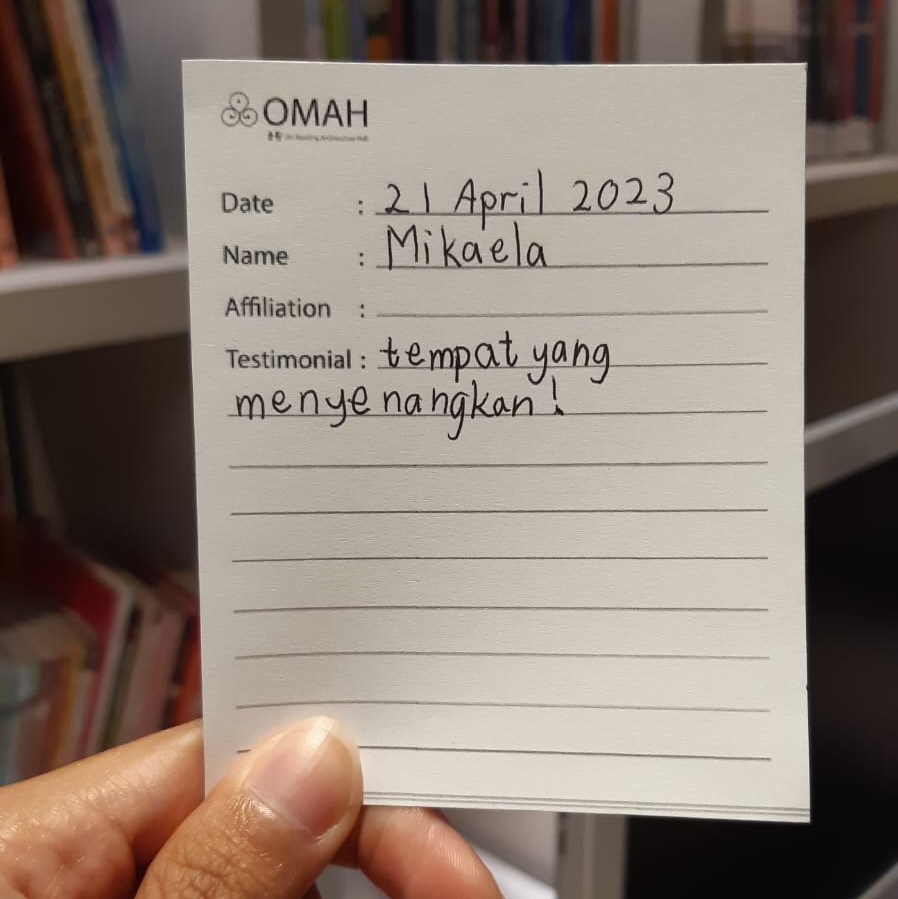 OMAH
Date : 21 April 2023
Name : Mikaela
Affiliation :
Testimonial : tempat yang
menyenangkan!